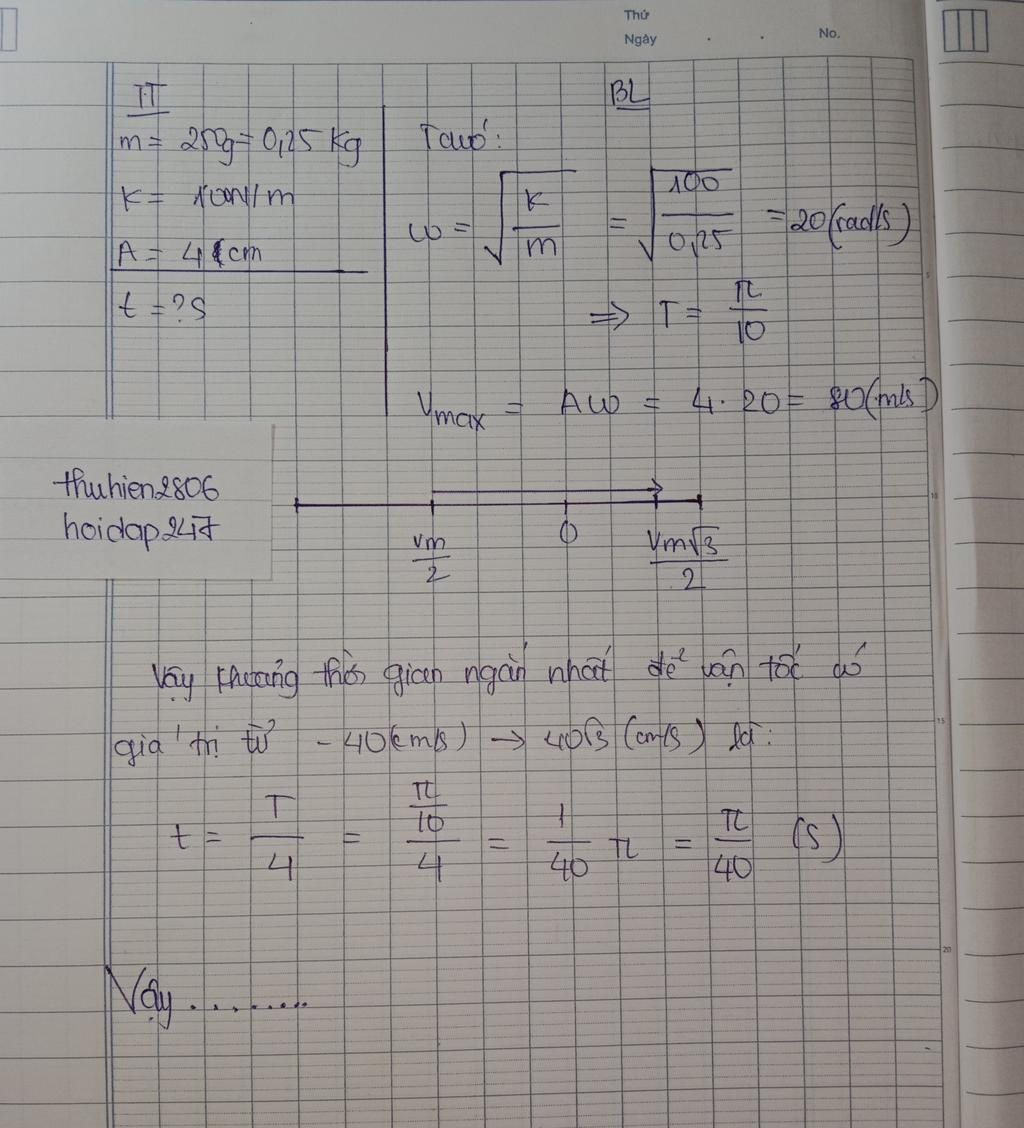 Thứ
Ngày . . No.
TT
m = 250g = 0,25 Kg
K = 100N/m
A = 4 cm
t = ? S
BL
Ta có:
ω = √(K/m) = √(100/0,25) = 20 (rad/s)
⇒ T = π/10
Vmax = Aω = 4 . 20 = 80 (m/s)
thuhien2806
hoidap247
Vm/2 O Vm√3/2
Vậy khoảng thời gian ngắn nhất để vận tốc có
giá trị từ - 40 (cm/s) → 40√3 (cm/s) là:
t = T/4 = π/10/4 = 1/40 π = π/40 (S)
Vậy ........
5
10
15
20